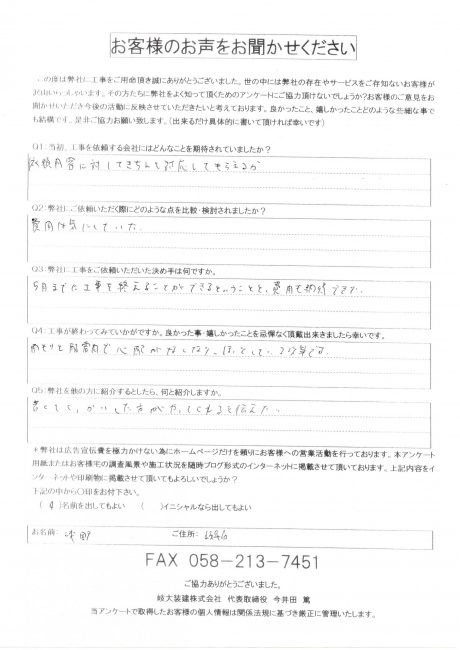 お客様のお声をお聞かせください
この度は弊社に工事をご用命頂き誠にありがとうございました。世の中には弊社の存在やサービスをご存知ないお客様が
沢山いらっしゃいます。その方たちに弊社をよく知って頂くためのアンケートにご協力頂けないでしょうか?お客様のご意見をお
聞かせいただき今後の活動に反映させていただきたいと考えております。良かったこと、嬉しかったことどのような些細な事で
も結構です。是非ご協力お願い致します。(出来るだけ具体的に書いて頂ければ幸いです)
Q1:当初、工事を依頼する会社にはどんなことを期待されていましたか?
依頼内容に対してきちんと対応してもらえるか
Q2:弊社にご依頼いただく際にどのような点を比較・検討されましたか?
費用は気にしていた。
Q3:弊社に工事をご依頼いただいた決め手は何ですか。
5月までに工事を終えることができるということと、費用も納得できた。
Q4:工事が終わってみていかがですか。良かった事・嬉しかったことを忌憚なく頂戴出来きましたら幸いです。
雨もりと騒音で心配がなくなり、ほっとしている
Q5:弊社を他の方に紹介するとしたら、何と紹介しますか。
と伝えたい
*弊社は広告宣伝費を極力かけない為にホームページだけを頼りにお客様への営業活動を行っております。本アンケート
用紙またはお客様宅の調査風景や施工状況を随時ブログ形式のインターネットに掲載させて頂いております。上記内容をイ
ンターネットや印刷物に掲載させて頂いてもよろしいでしょうか?
下記の中から〇印をお付下さい。
( )名前を出してもよい ( )イニシャルなら出してもよい
お名前: ご住所:
FAX 058-213-7451
ご協力ありがとうございました。
岐大装建株式会社 代表取締役 今井田 篤
当アンケートで取得したお客様の個人情報は関係法規に基づき厳正に管理いたします。